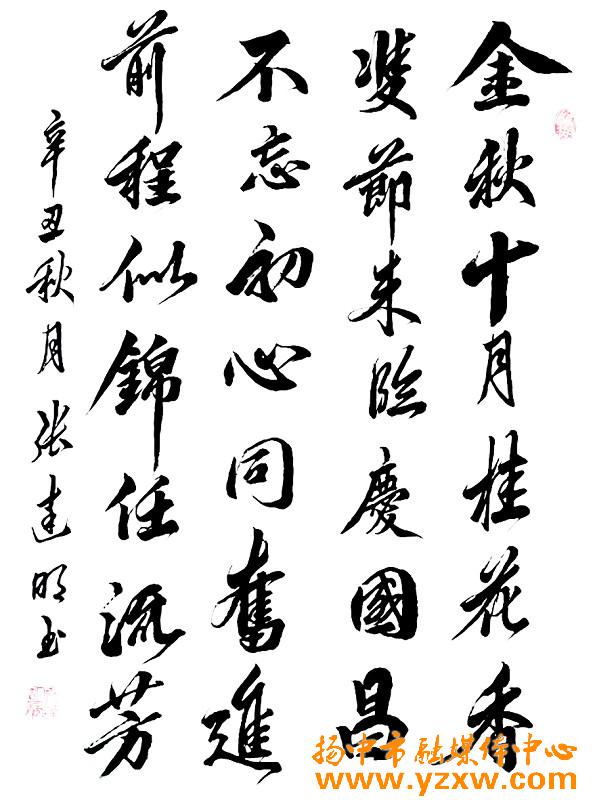 金秋十月桂花香
雙節来临慶國昌
不忘初心同奮進
前程似錦任流芳
辛丑秋月张建明书
扬中市融媒体中心
www.yzxw.com